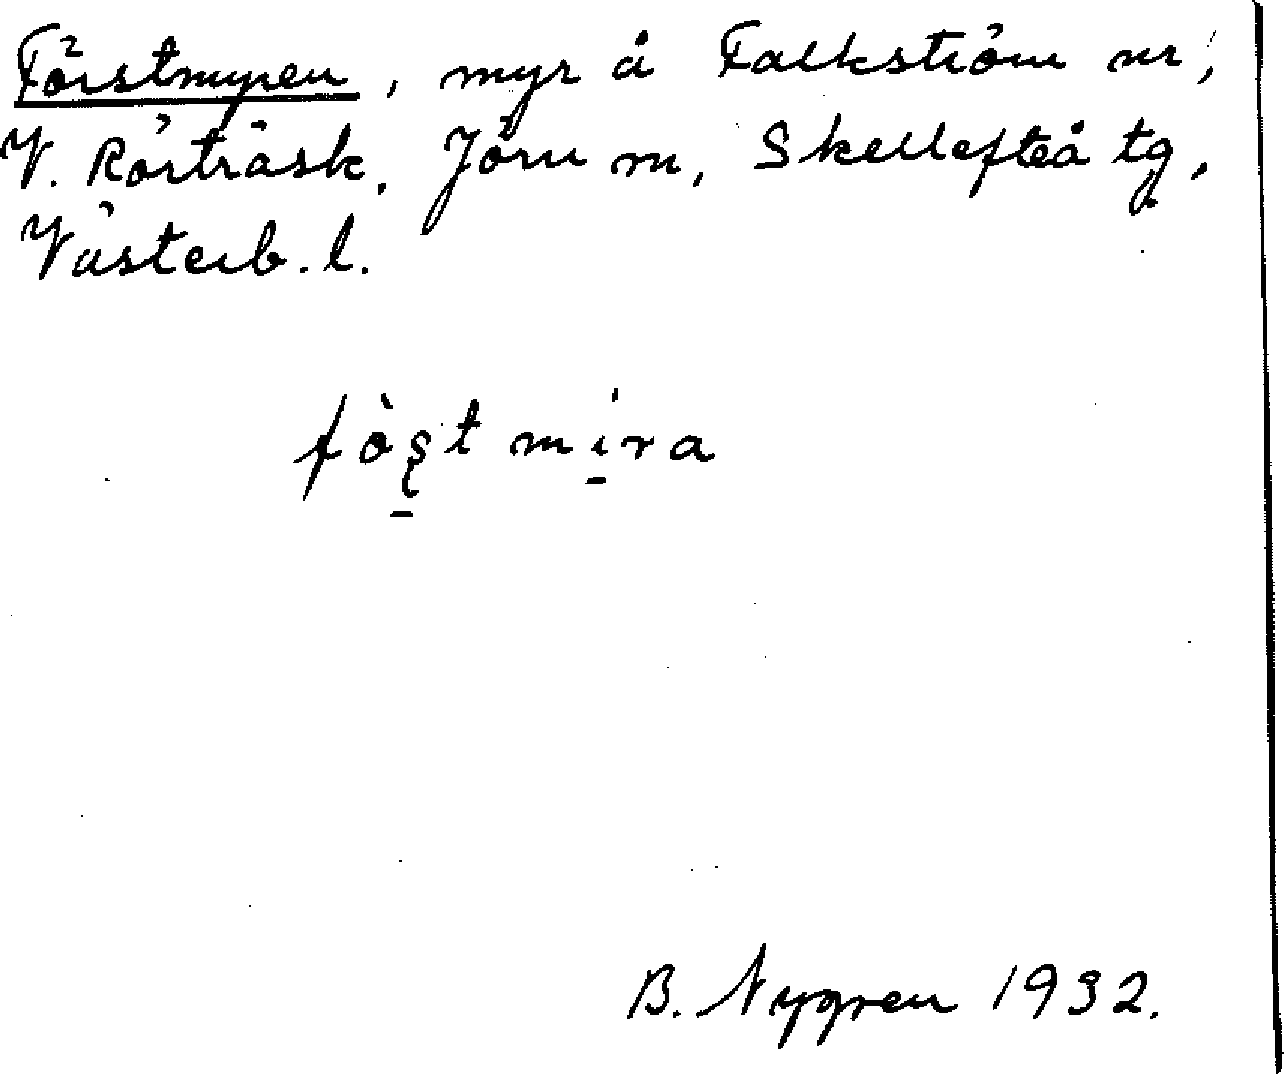 Förstmyren, myr å Falkström nr,
V. Rörträsk, Jörn m, Skellefteå tg.
Västerb. l.
fòʂt míra
B. Nygren 1932.